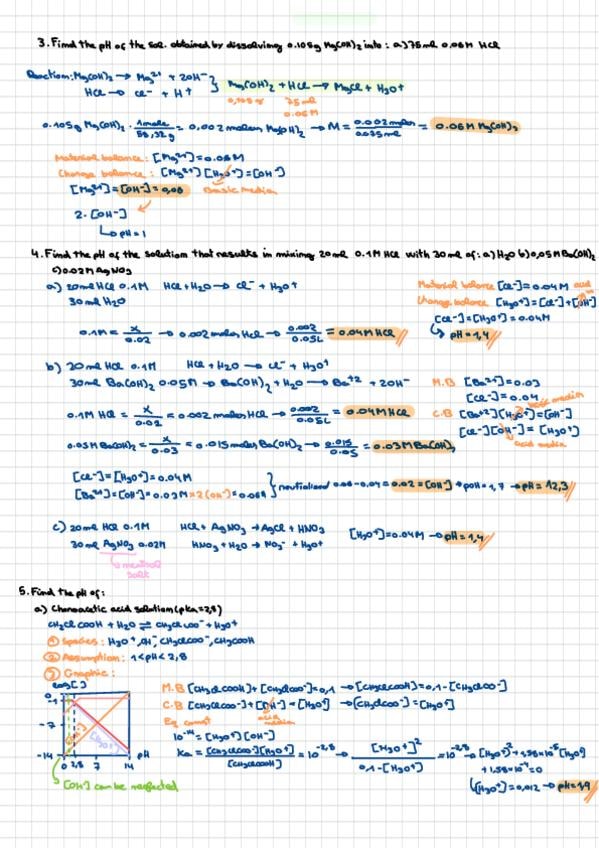 3. Find the pH of the sol. obtained by dissolving 0.105g Mg(OH)₂ into: a) 75 ml 0.06M HCl
Reaction: Mg(OH)₂ → Mg²⁺ + 2OH⁻
HCl → Cl⁻ + H⁺ } Mg(OH)₂ + HCl → MgCl + H₃O⁺
0,105 g 75 ml
0.06M
0.105g Mg(OH)₂ · 1mole/58,32g = 0,002 moles Mg(OH)₂ → M = 0.002 moles/0.035ml = 0.06M Mg(OH)₂
Material balance: [Mg²⁺] = 0.06M
Charge balance: [Mg²⁺][H₃O⁺] = [OH⁻]
[Mg²⁺] = [OH⁻] = 0,06 Basic media
2·[OH⁻]
↳ pH = 1
4. Find the pH of the solution that results in mixing 20 ml 0.1M HCl with 30 ml of: a) H₂O b) 0,05M Ba(OH)₂
c) 0.02M AgNO₃
a) 20 ml HCl 0.1M HCl + H₂O → Cl⁻ + H₃O⁺
30 ml H₂O
Material balance [Cl⁻] = 0.04M acid
Charge balance [H₃O⁺] = [Cl⁻] + [OH⁻]
[Cl⁻] = [H₃O⁺] = 0.04M
↳ pH = 1,4
0.1M = x/0.02 → 0.002 moles HCl → 0.002/0.05L = 0.04M HCl
b) 20 ml HCl 0.1M HCl + H₂O → Cl⁻ + H₃O⁺
30 ml Ba(OH)₂ 0.05M → Ba(OH)₂ + H₂O → Ba⁺² + 2OH⁻
M.B [Ba²⁺] = 0.03
[Cl⁻] = 0.04
basic media
C.B [Ba⁺²][H₃O⁺] = [OH⁻]
[Cl⁻][OH⁻] = [H₃O⁺]
acid media
0.1M HCl = x/0.02 = 0.002 moles HCl → 0.002/0.05L = 0.04M HCl
0.05M Ba(OH)₂ = x/0.03 = 0.015 moles Ba(OH)₂ → 0.015/0.05 = 0.03M Ba(OH)₂
[Cl⁻] = [H₃O⁺] = 0.04M
[Ba²⁺] = [OH⁻] = 0.03M × 2(OH⁻) = 0.06M } neutralized 0.06-0.04 = 0.02 = [OH⁻] → pOH = 1,7 → pH = 12,3
c) 20 ml HCl 0.1M HCl + AgNO₃ → AgCl + HNO₃
30 ml AgNO₃ 0.02M HNO₃ + H₂O → NO₃⁻ + H₃O⁺
[H₃O⁺] = 0.04M → pH = 1,4
↳ neutral
salt
5. Find the pH of:
a) Choroacetic acid solution (pKa = 2,8)
CH₂ClCOOH + H₂O ⇌ CH₂ClCOO⁻ + H₃O⁺
① Species: H₃O⁺, OH⁻, CH₂ClCOO⁻, CH₃COOH
② Assumption: 1 < pH < 2,8
③ Graphic:
log[ ]
0
-1
-7
-14
0 2,8 7 14 pH
[H₃O⁺]
[OH⁻] can be neglected
M.B [CH₂ClCOOH] + [CH₂ClCOO⁻] = 0,1 → [CH₂ClCOOH] = 0,1 - [CH₂ClCOO⁻]
C.B [CH₂ClCOO⁻] + [OH⁻] = [H₃O⁺] → [CH₂ClCOO⁻] = [H₃O⁺]
Eq const acid media
10⁻¹⁴ = [H₃O⁺][OH⁻]
Ka = [CH₂ClCOO⁻][H₃O⁺]/[CH₂ClCOOH] = 10⁻²·⁸ → [H₃O⁺]²/0.1-[H₃O⁺] = 10⁻²·⁸ → [H₃O⁺]² + 1,58×10⁻³[H₃O⁺]
+ 1,58×10⁻⁴ = 0
↳ [H₃O⁺] = 0,012 → pH = 1,9